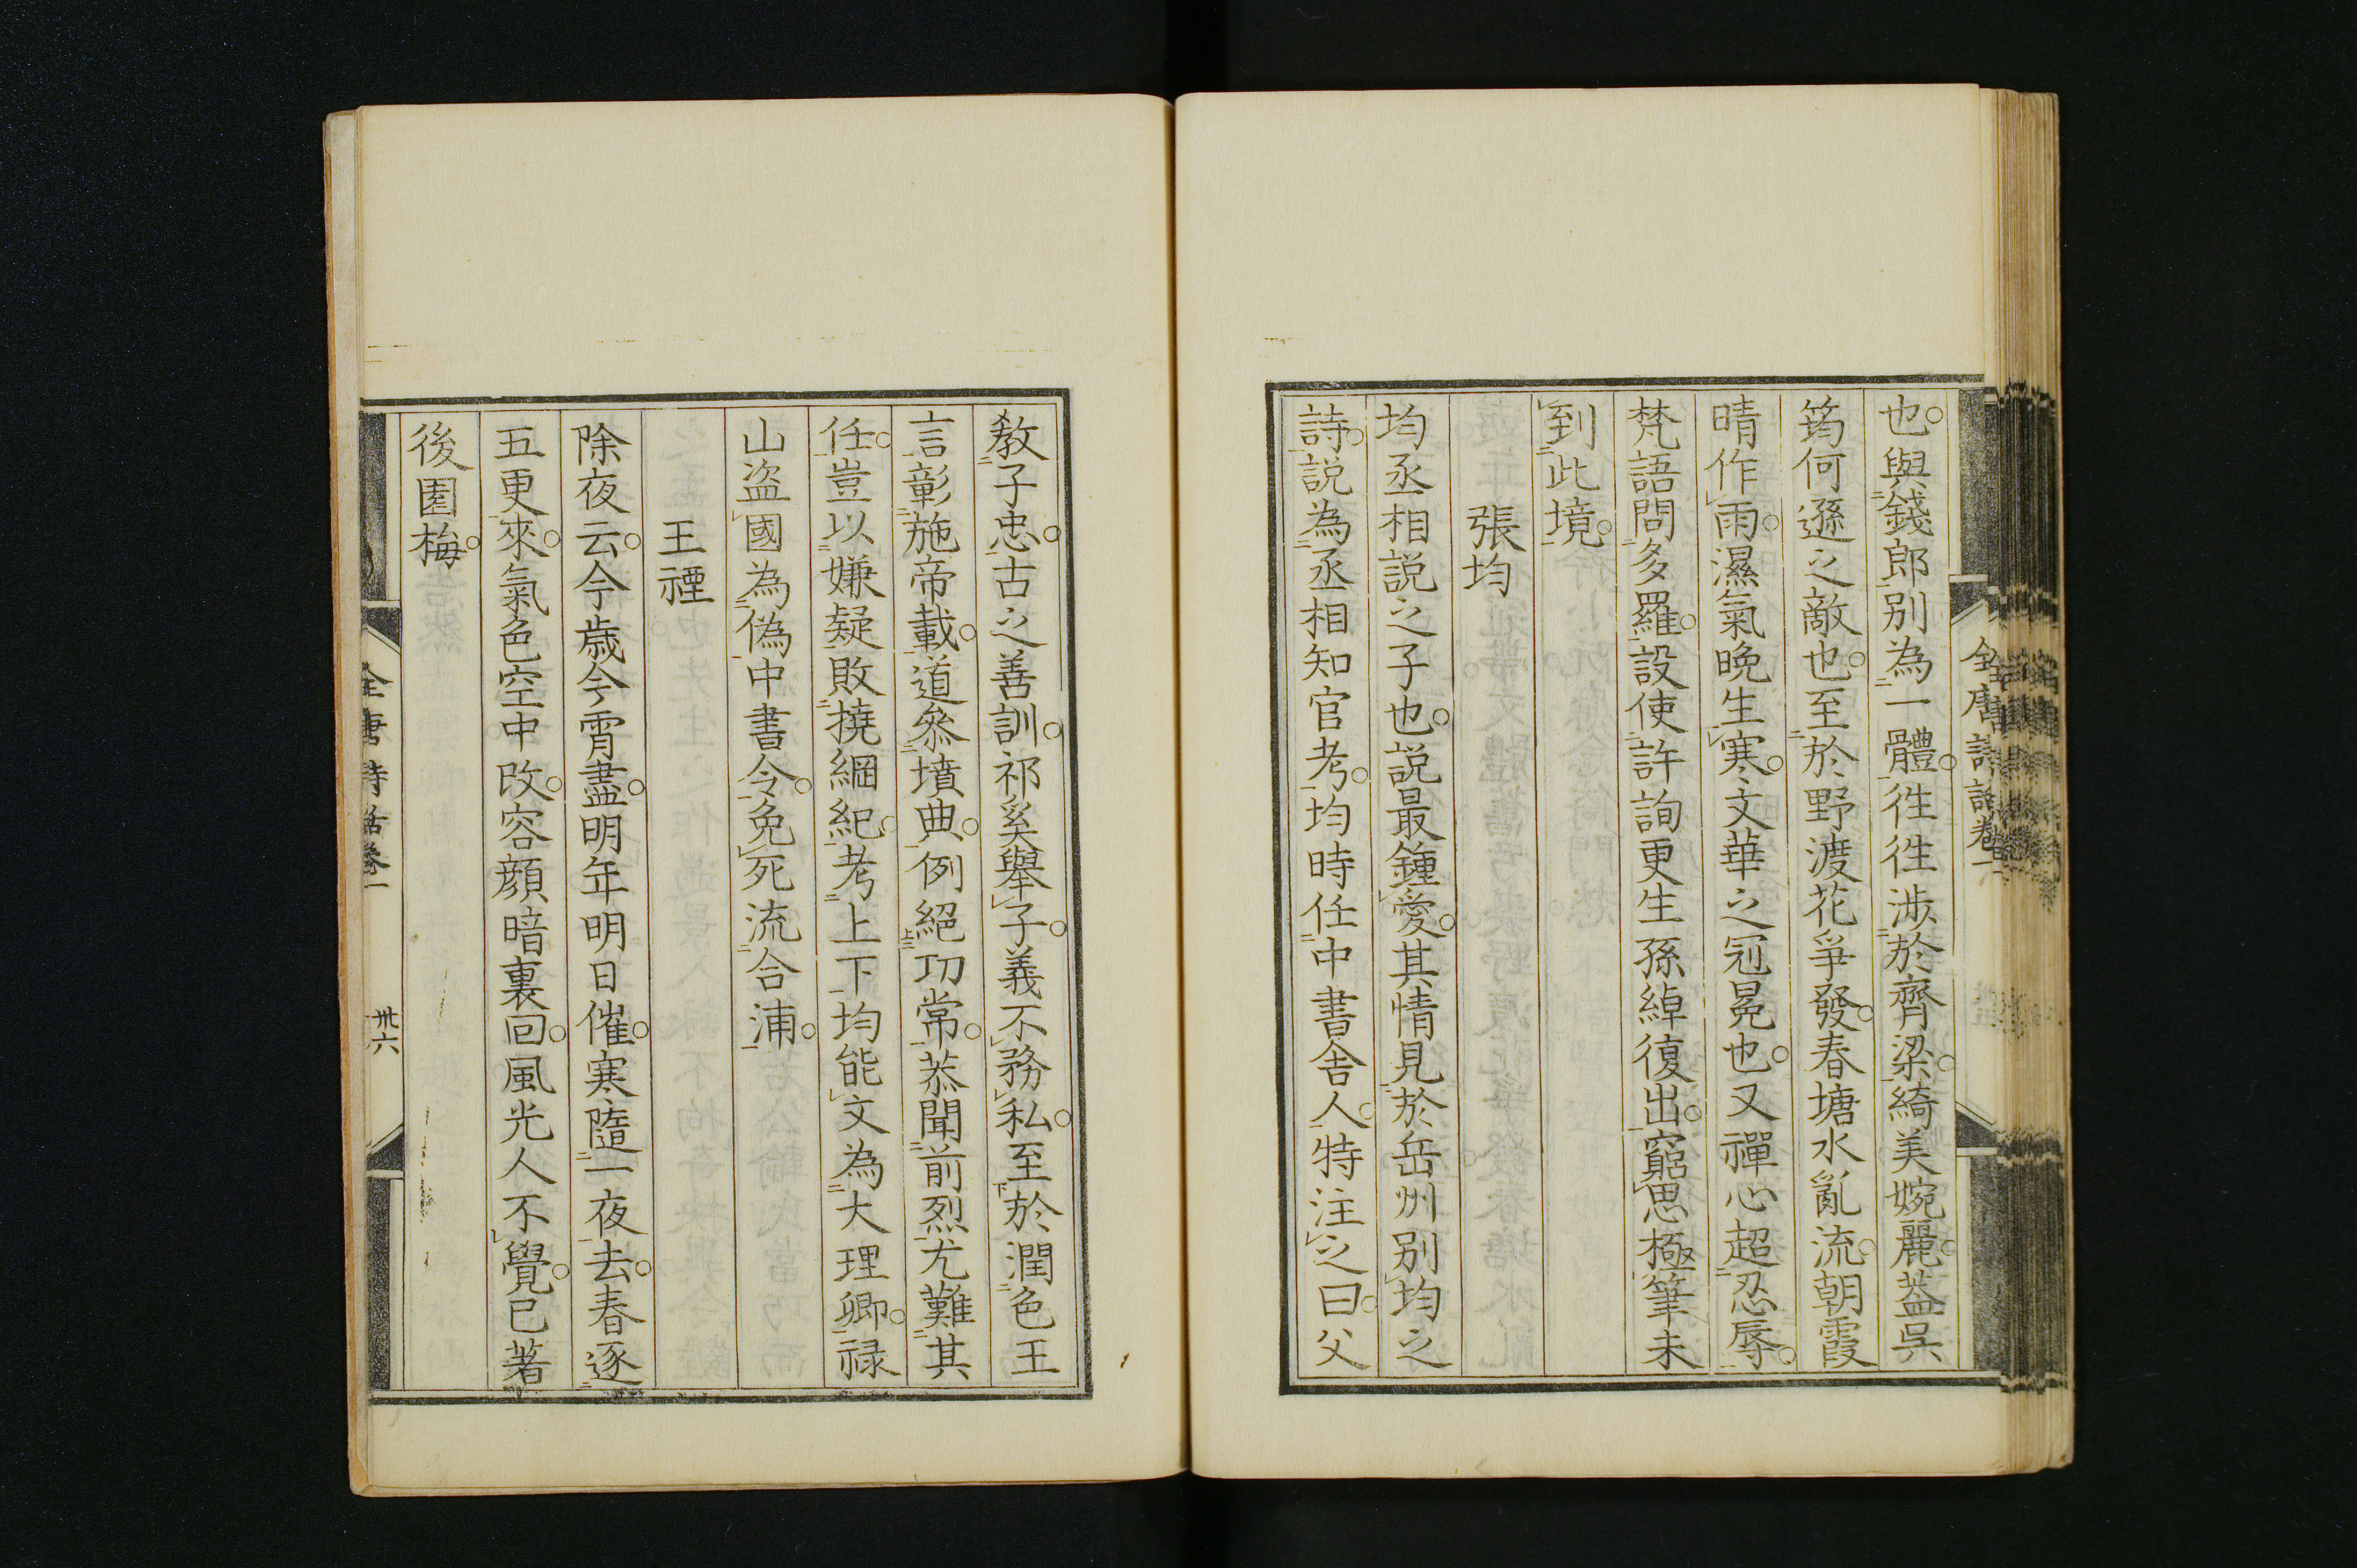 也與錢郎別為一體徃徃涉於齊梁綺美婉麗葢吳
筠何遜之敵也至於野渡花爭發春塘水亂流朝霞
晴作雨濕氣晚生寒文華之冠冕也又禪心超忍辱
梵語問多羅設使許詢更生孫綽復出窮思極筆未
到此境
張均
均丞相説之子也説最鍾愛其情見於岳州別均之
詩説為丞相知官考均時任中書舎人特注之曰父
教子忠古之善訓祁奚舉子義不務私至於潤色王
言彰施帝載道叅墳典例絕功常恭聞前烈尤難其
任豈以嫌疑敗撓綱紀考上下均能文為大理卿禄
山盗國為偽中書令免死流合浦
王禋
除夜云今歲今宵盡明年明日催寒隨一夜去春逐
五更來氣色空中改容顔暗裏回風光人不覺已著
後園梅
全唐詩話卷一
卅六